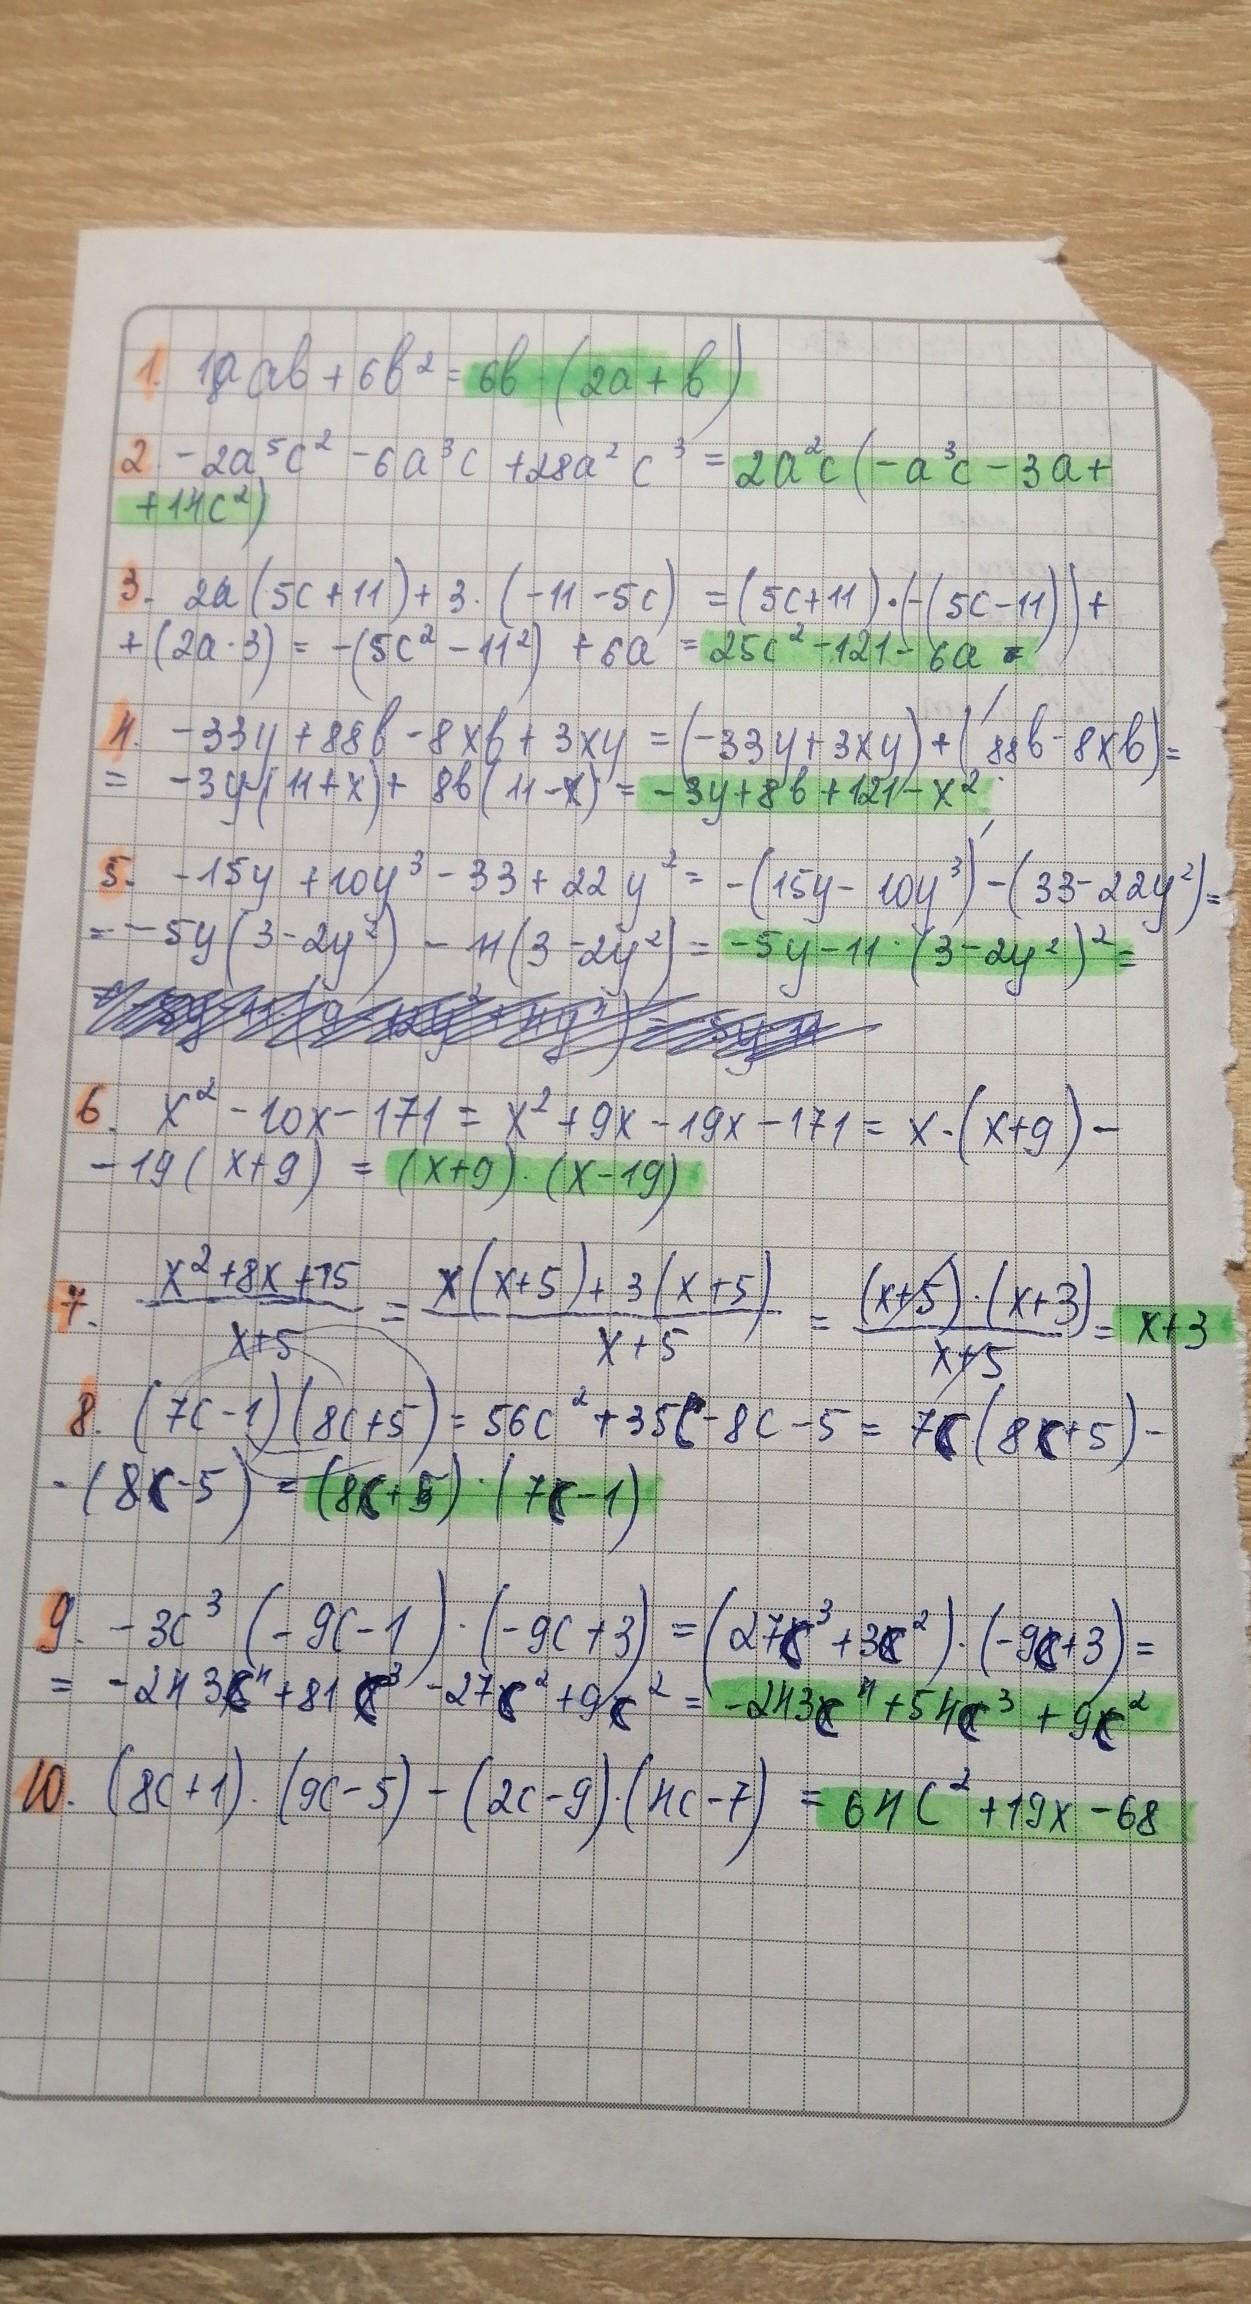 1. 12ab + 6b² = 6b · (2a + b)
2. -2a⁵c² - 6a³c + 28a²c³ = 2a²c (-a³c - 3a +
+ 14c²)
3. 2a (5c + 11) + 3 · (-11 - 5c) = (5c + 11) · (-(5c - 11)) +
+ (2a · 3) = -(5c² - 11²) + 6a = 25c² - 121 - 6a =
4. -33y + 88b - 8xb + 3xy = (-33y + 3xy) + (88b - 8xb) =
= -3y (11 + x) + 8b (11 - x) = -3y + 8b + 121 - x²
5. -15y + 10y³ - 33 + 22y² = -(15y - 10y³) - (33 - 22y²) =
= -5y (3 - 2y²) - 11 (3 - 2y²) = -5y - 11 · (3 - 2y²)² =
6. x² - 10x - 171 = x² + 9x - 19x - 171 = x · (x + 9) -
- 19 (x + 9) = (x + 9) · (x - 19)
7. x² + 8x + 15 / x + 5 = x (x + 5) + 3 (x + 5) / x + 5 = (x + 5) · (x + 3) / x + 5 = x + 3
8. (7c - 1) (8c + 5) = 56c² + 35c - 8c - 5 = 7c (8c + 5) -
- (8c - 5) = (8c + 5) · (7c - 1)
9. -3c³ (-9c - 1) · (-9c + 3) = (27c³ + 3c²) · (-9c + 3) =
= -243c⁴ + 81c³ - 27c² + 9c² = -243c⁴ + 54c³ + 9c²
10. (8c + 1) · (9c - 5) - (2c - 9) · (4c - 7) = 64c² + 19x - 68